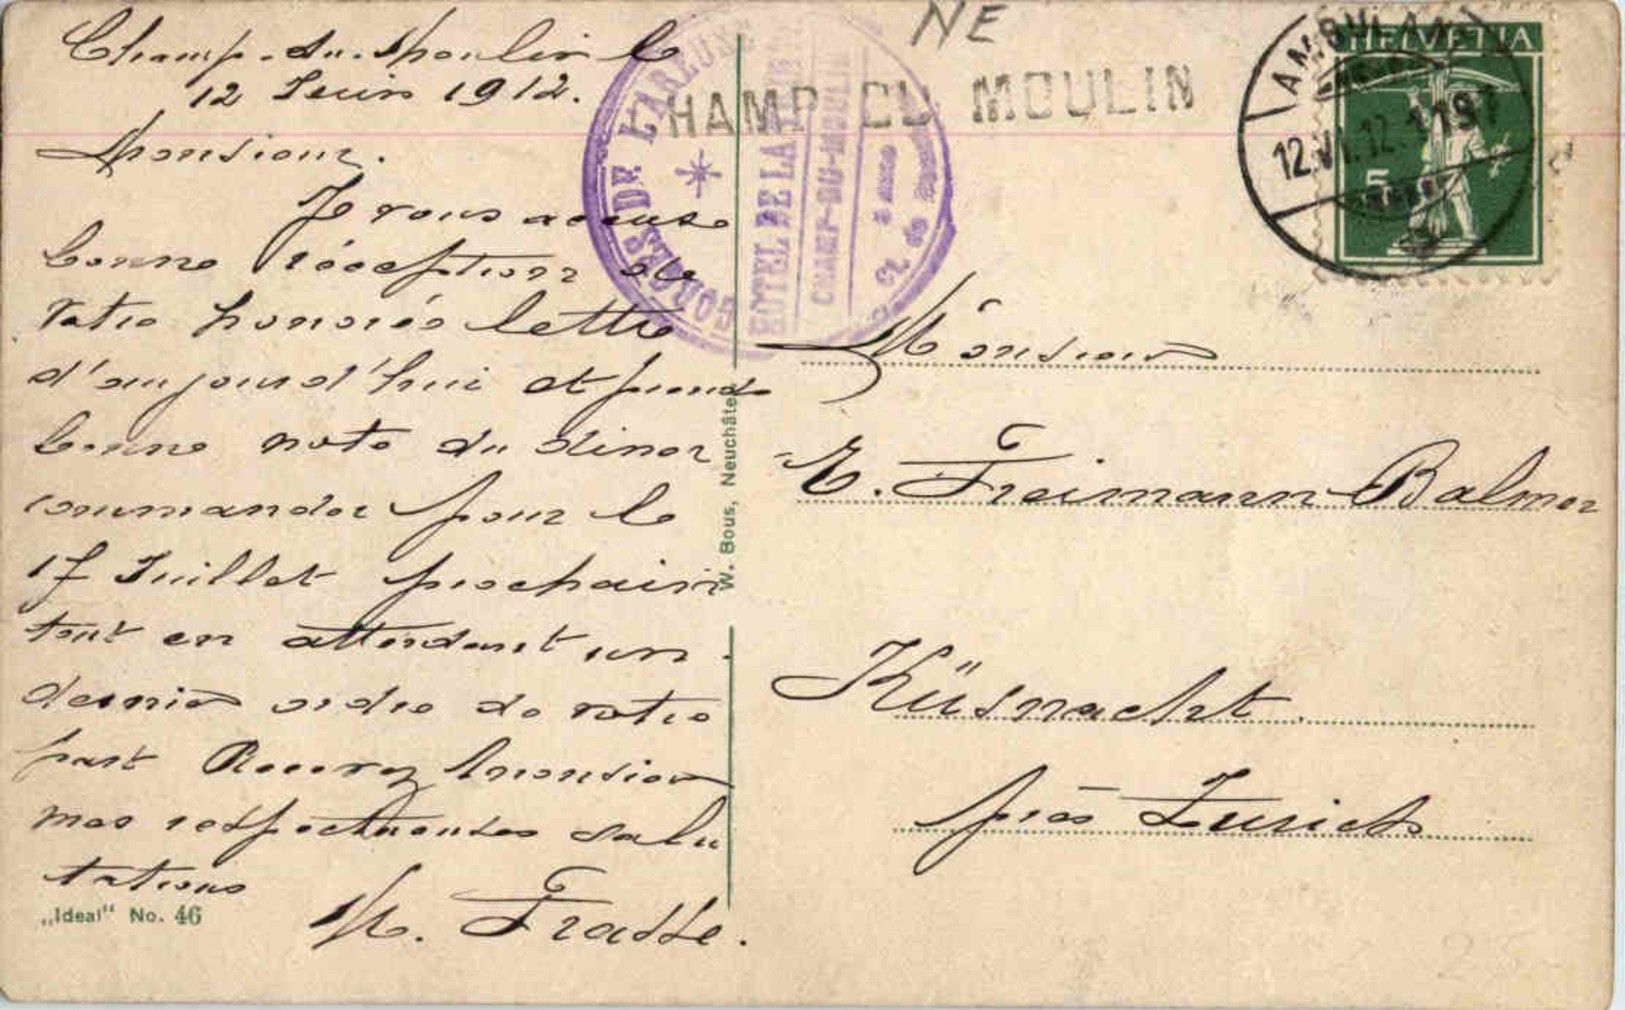 Champ-du-Moulin le
12 Juin 1912.
Monsieur.
Je vous accuse
bonne réception de
votre honorés lettre
d'aujourd'hui et prends
bonne note du diner
commander pour le
17 Juillet prochain
tout en attendant un
dernier ordre de votre
part Recevez Monsieur
mes respectueuses salu
tations
M. Frasse.
„Ideal“ No. 46
W. Bous, Neuchâtel
GORGES DE L'AREUSE
HOTEL DE LA
CHAMP-DU-MOULIN
Ct. de
NE
CHAMP DU MOULIN
AMBULANT
12.VI.12.
HELVETIA
5
Monsieur
E. Freimann Balmer
Küsnacht
près Zurich